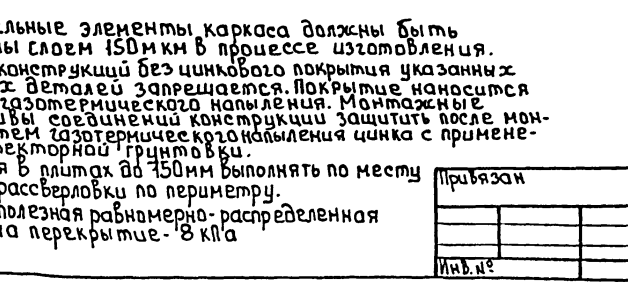 льные элементы каркаса должны быть
ы слоем 150мкм в процессе изготовления.
конструкций без цинкового покрытия указанных
х деталей запрещается. Покрытие наносится
газотермического напыления. Монтажные
вы соединений конструкции защитить после мон-
тем газотермического напыления цинка с примене-
екторной грунтовки.
я в плитах до 150мм выполнять по месту
рассверловки по периметру.
полезная равномерно-распределенная
на перекрытие- 8 кПа
Привязан
Инв. №